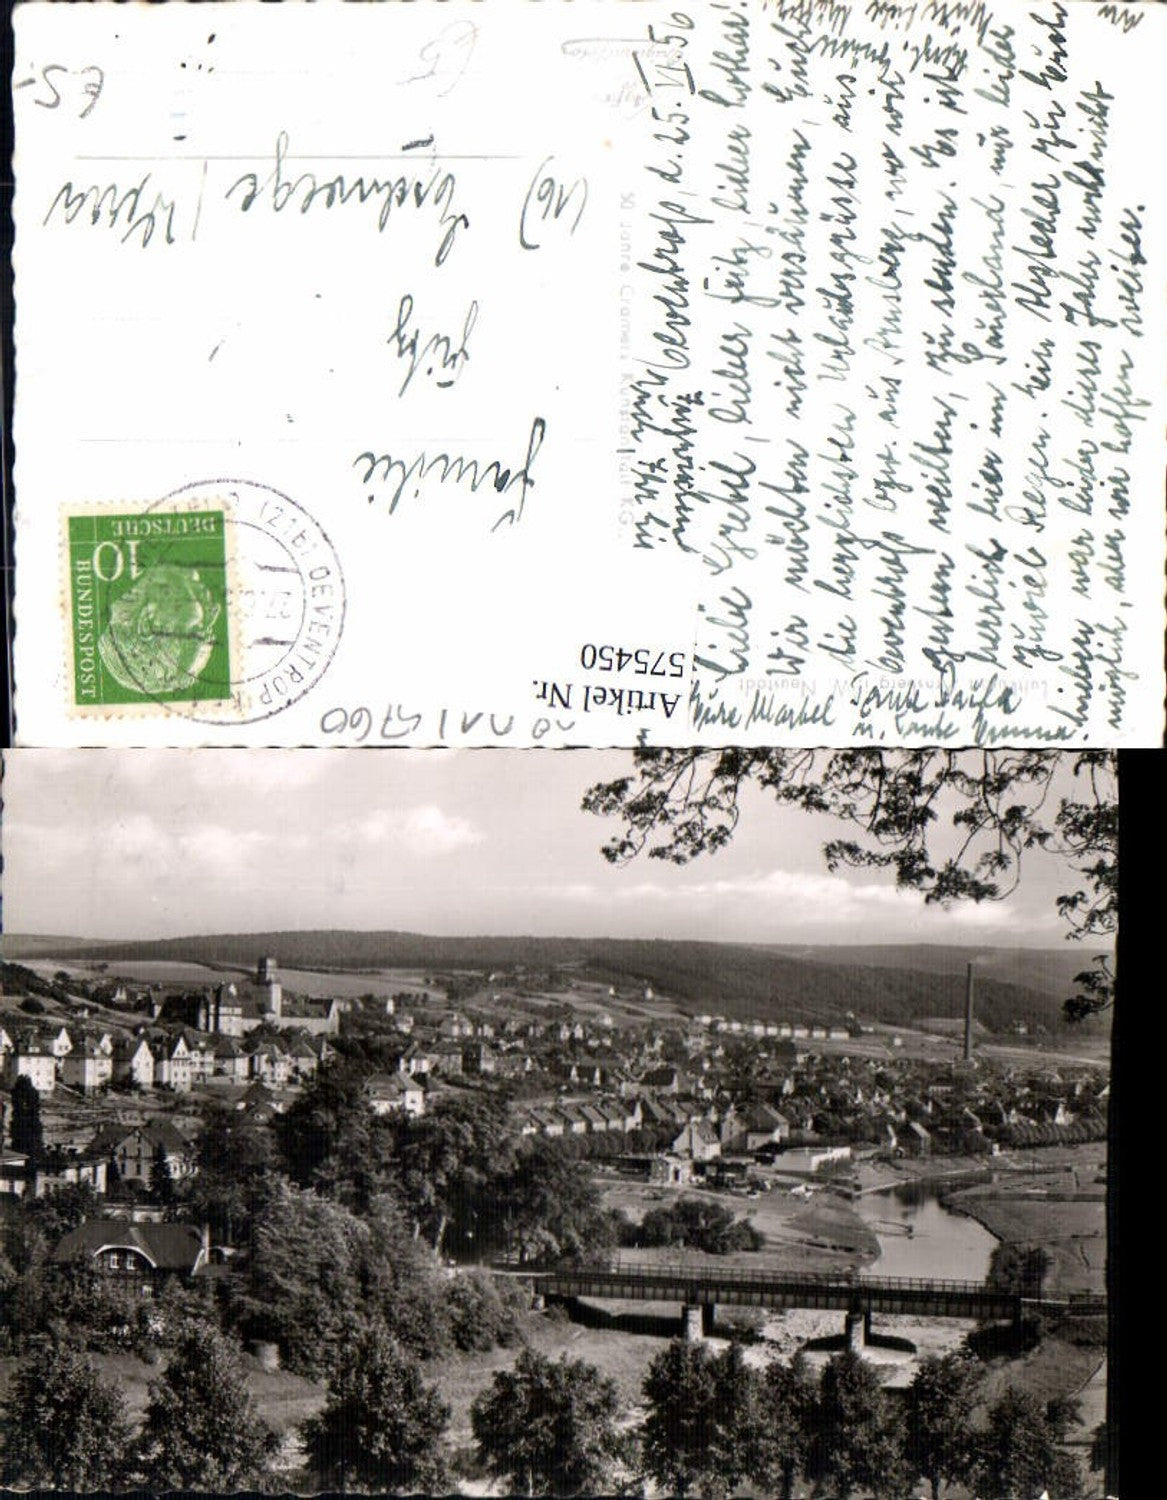 Oeventrop, d. 25. VI. 56
Liebe Gretel, lieber Fritz, lieber Lothar!
Wir möchten nicht versäumen, Euch
die herzlichsten Urlaubsgrüsse aus
Oeventrop bzw. aus Arnsberg, wo wir
gestern weilten, zu senden. Es ist
herrlich hier im Sauerland, nur leider
zuviel Regen. Ein Abstecher zu Euch
war leider dieses Jahr nicht
möglich, aber wir hoffen weiter.
Eure
Tante Paula
u. Tante Emma.
Familie
Fritz
(16) Eschwege / Werra
DEUTSCHE
BUNDESPOST
10
(21b) OEVENTROP
50 Jahre Cramers Kunstanstalt KG.
Luftkurort Arnsberg i. W. Neustadt
Artikel Nr.
575450